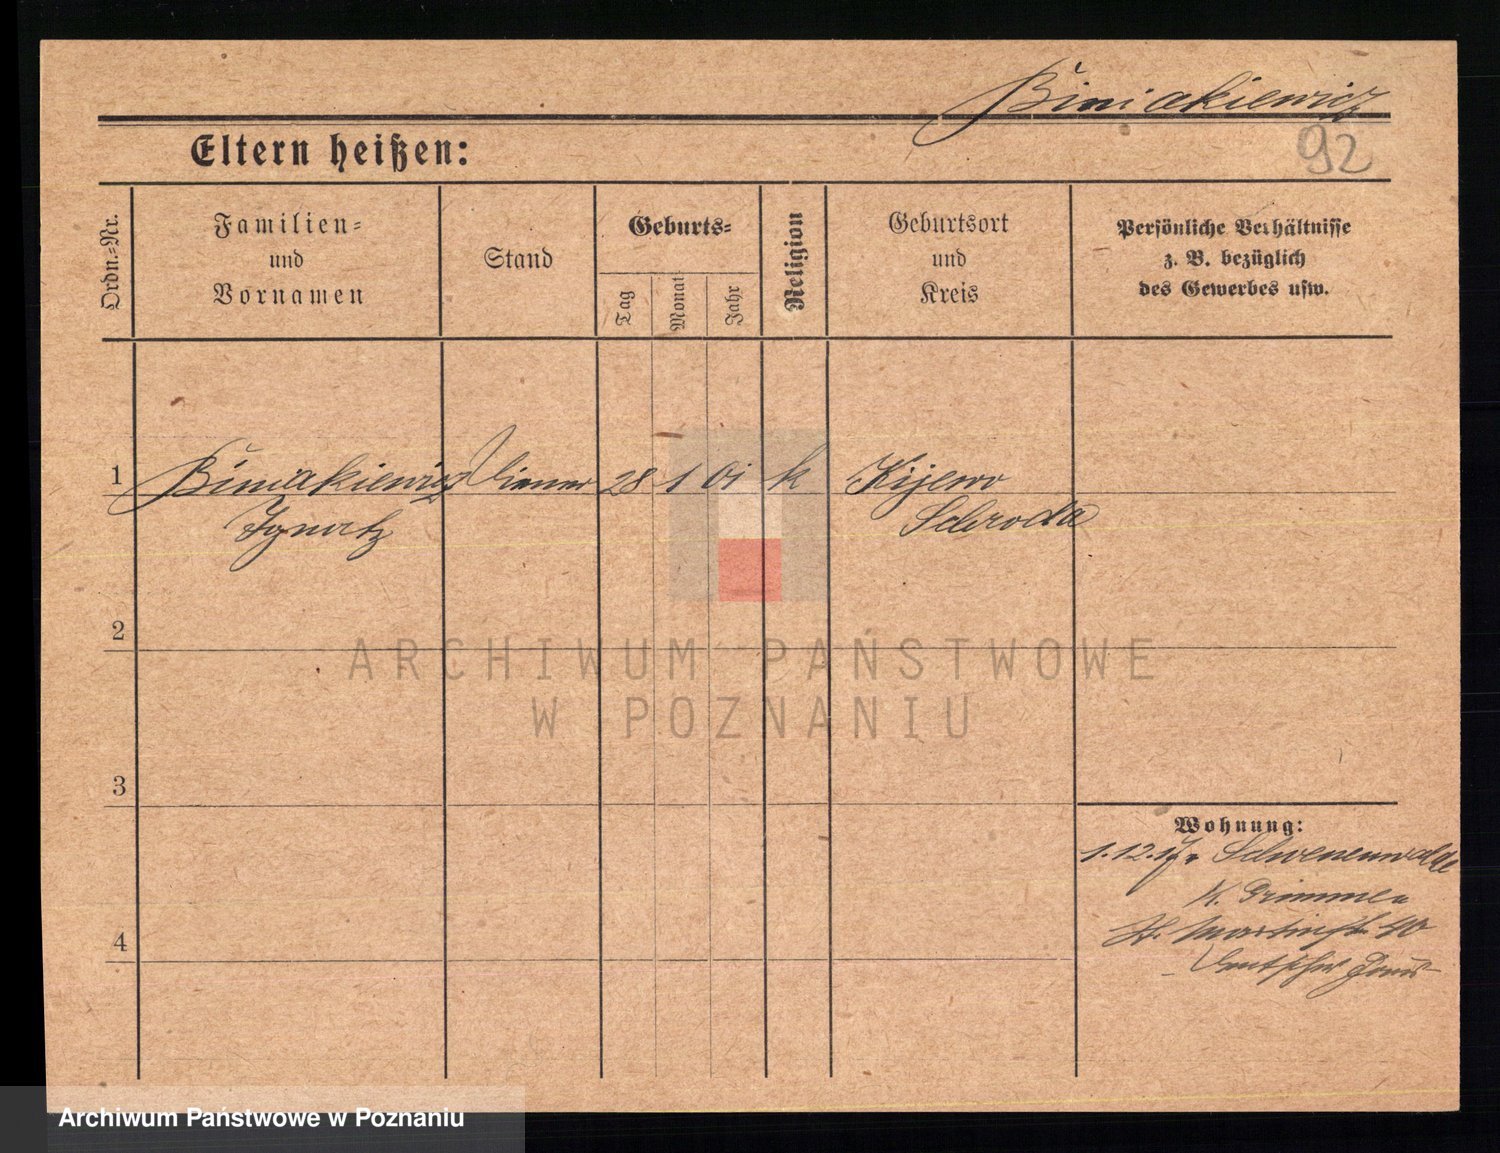 Biniakiewicz
92
Eltern heißen:
Ordn.-Nr.
Familien-
und
Vornamen
Stand
Geburts-
Tag
Monat
Jahr
Religion
Geburtsort
und
Kreis
Persönliche Verhältnisse
z. B. bezüglich
des Gewerbes usw.
1 Biniakiewicz Diener 28 1 01 k Kijewo
Ignatz Schroda
2
ARCHIWUM PAŃSTWOWE
W POZNANIU
3
Wohnung:
1.12.17.
St. Martinstr. 40
4
Archiwum Państwowe w Poznaniu